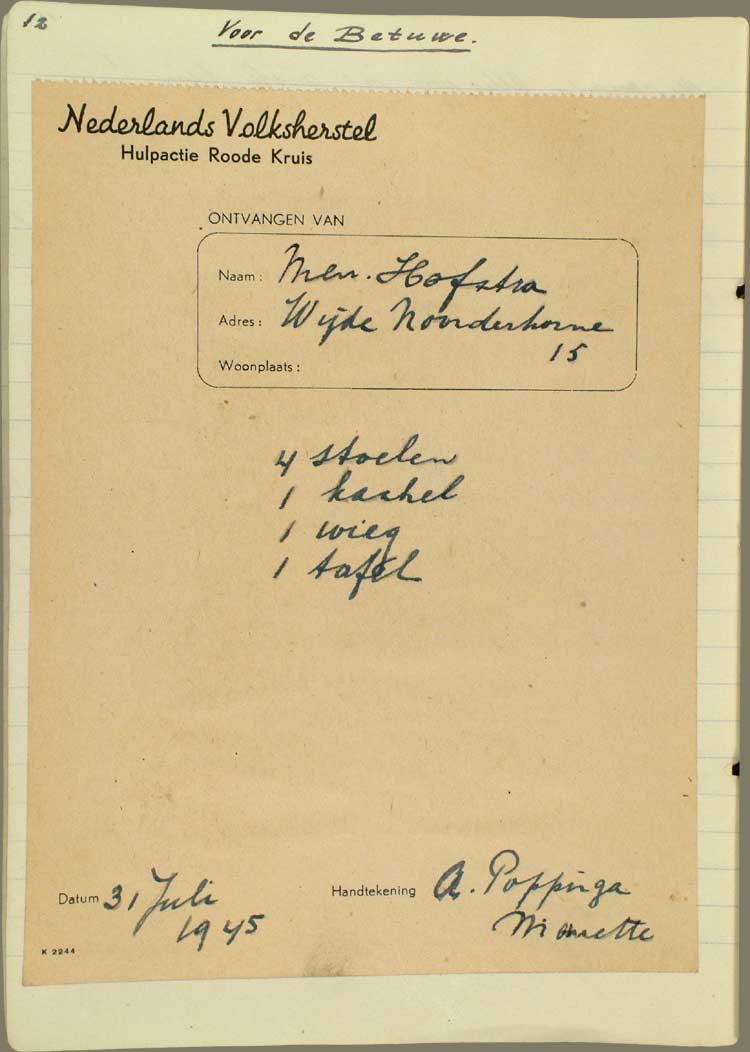 12
Voor de Betuwe.
Nederlands Volksherstel
Hulpactie Roode Kruis
ONTVANGEN VAN
Naam: Mevr. Hofstra
Adres: Wijde Noorderhorne
15
Woonplaats:
4 stoelen
1 kachel
1 wieg
1 tafel
Datum 31 Juli
1945
Handtekening A. Poppinga
K 2244